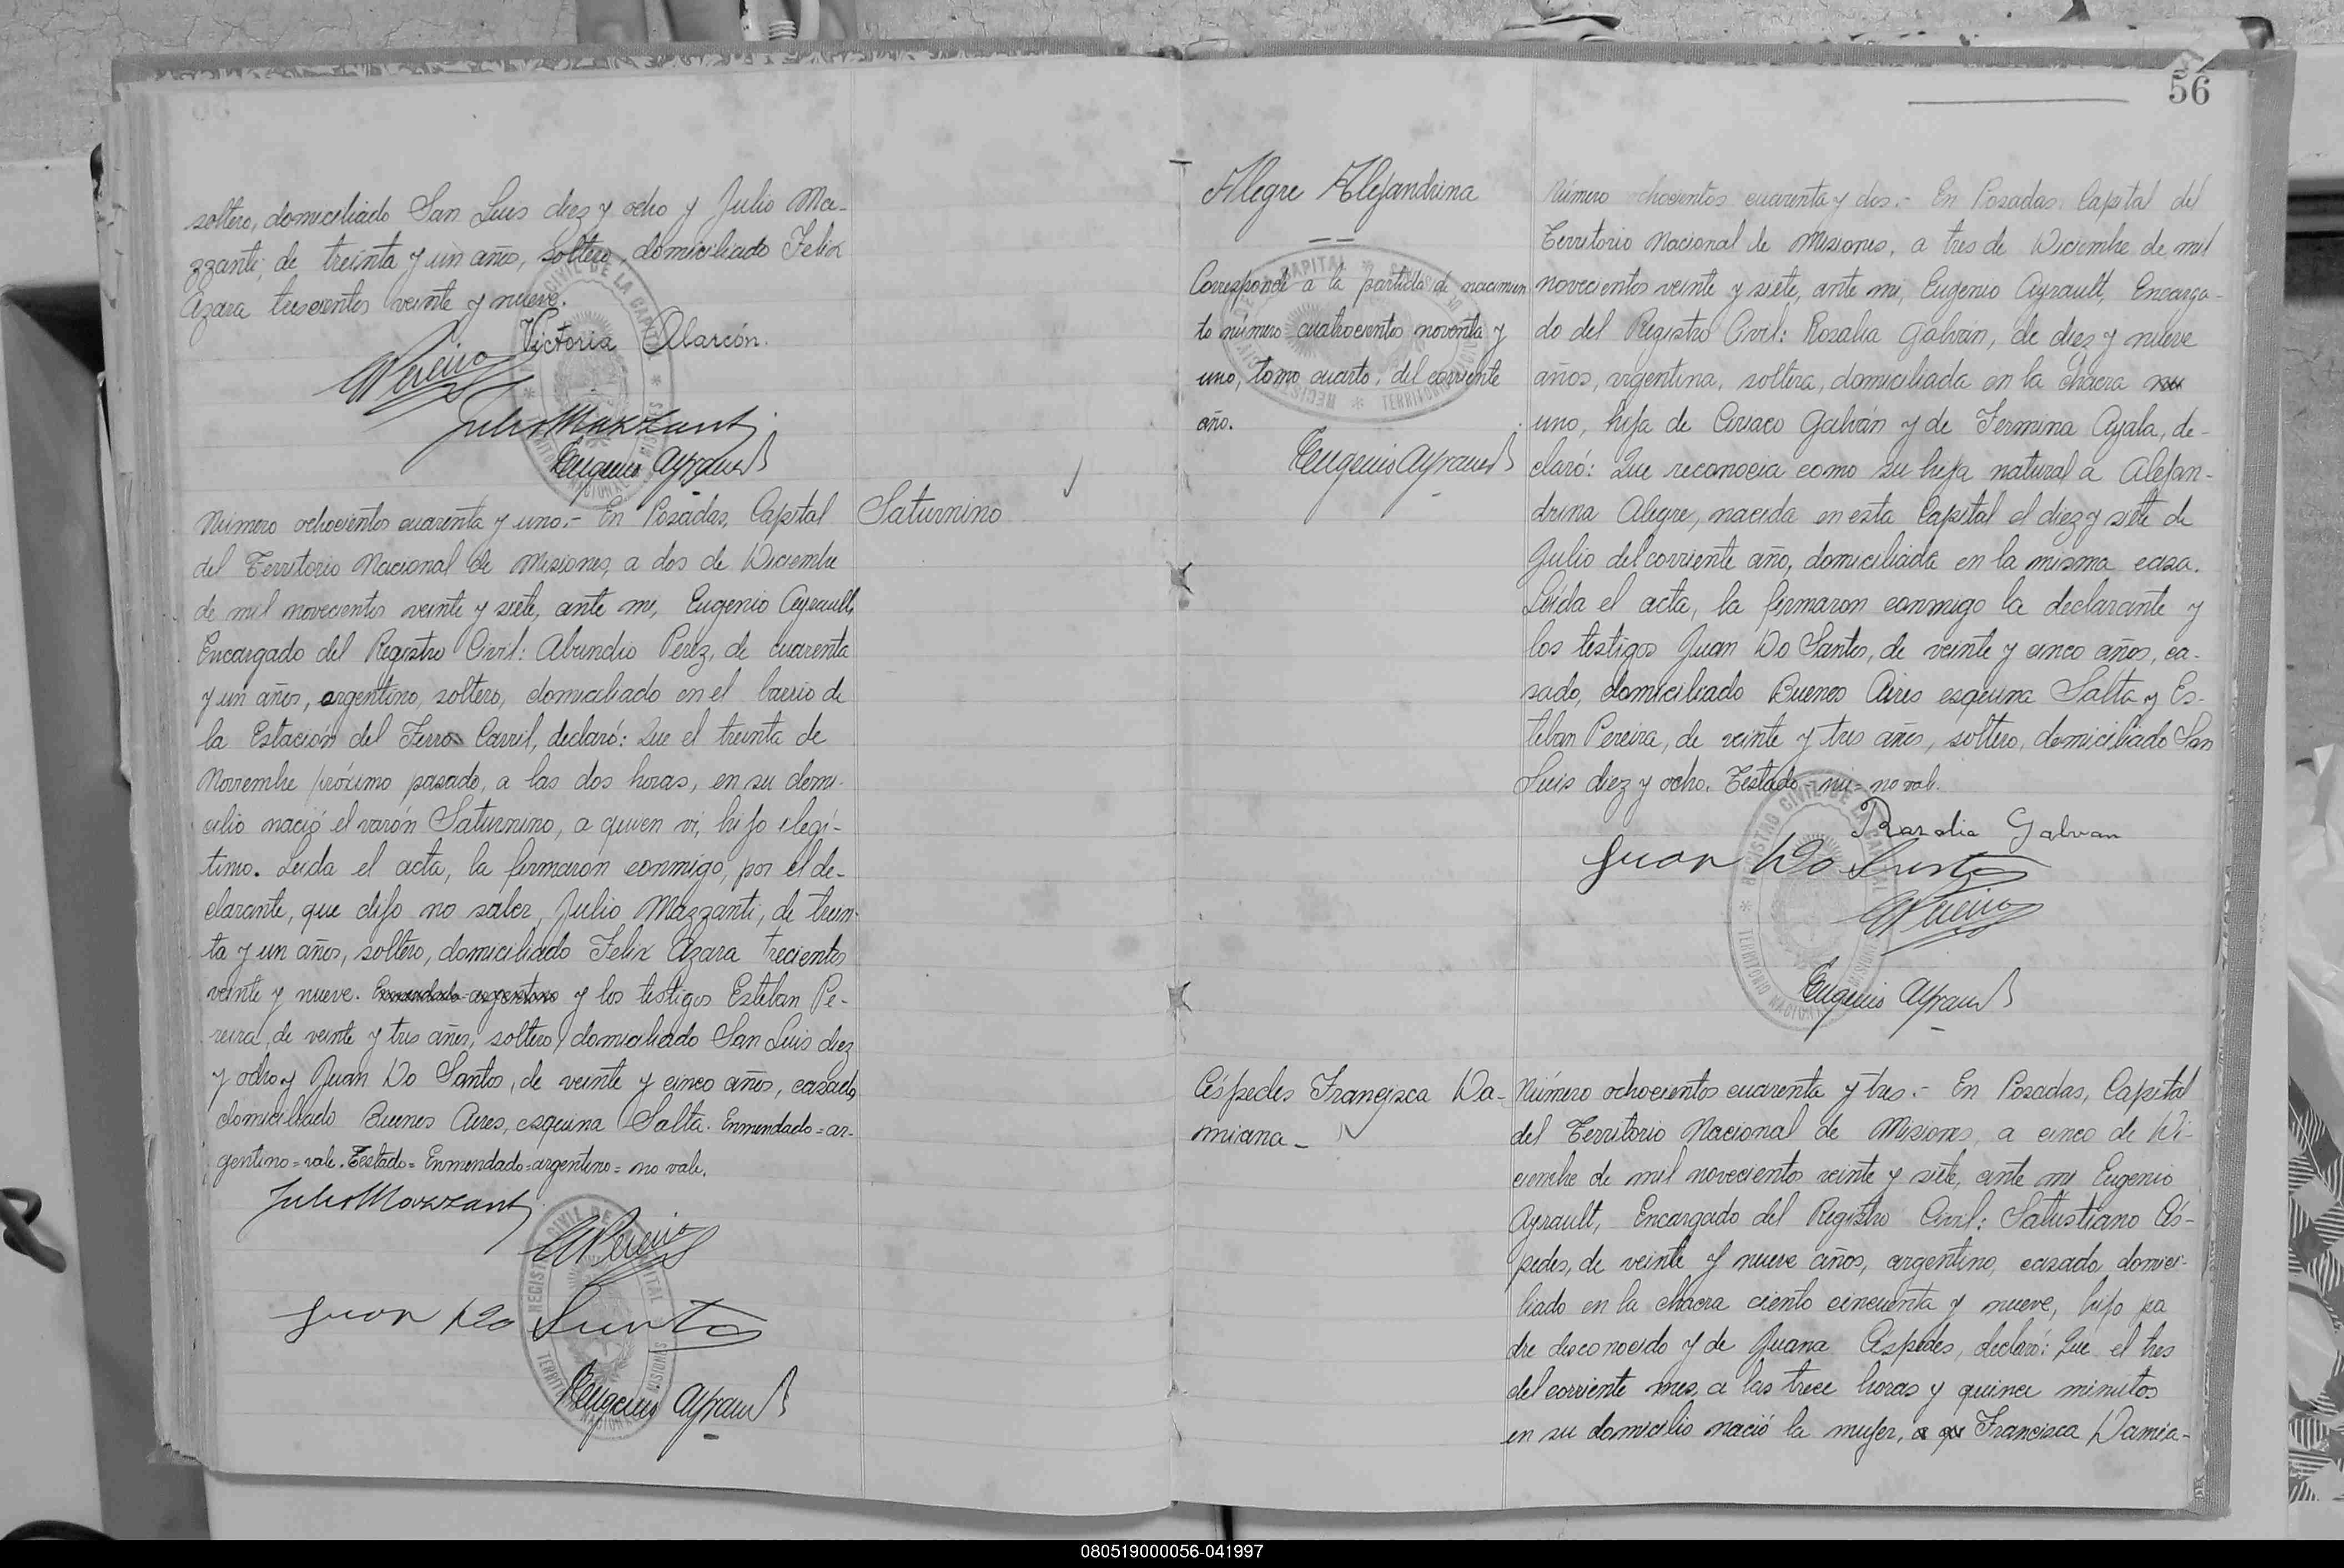 soltero, domiciliado San Luis diez y ocho y Julio Ma-
zzanti, de treinta y un año, soltero, domiciliado Felix
Azara trescientos veinte y nueve.
Victoria Alarcón.
EPereira
Julio Mazzanti
Eugenio Ayrault
Número ochocientos cuarenta y uno.- En Posadas, Capital
del Territorio Nacional de Misiones, a dos de Diciembre
de mil novecientos veinte y siete, ante mi, Eugenio Ayrault,
Encargado del Registro Civil: Abundio Perez, de cuarenta
y un años, argentino, soltero, domiciliado en el barrio de
la Estación del Ferro Carril, declaró: Que el treinta de
Noviembre próximo pasado, a las dos horas, en su domi-
cilio nació el varón Saturnino, a quien vi, hijo ilegi-
timo. Leida el acta, la firmaron conmigo, por el de-
clarante, que dijo no saber, Julio Mazzanti, de trein-
ta y un años, soltero, domiciliado Felix Azara trecientos
veinte y nueve. Enmendado=argentino y los testigos Esteban Pe-
reira, de veinte y tres años, soltero, domiciliado San Luis diez
y ocho y Juan Do Santos, de veinte y cinco años, casado,
domiciliado Buenos Aires, esquina Salta. Enmendado=ar-
gentino=vale. Testado=Enmendado=argentino=no vale.
Julio Mazzanti
EPereira
Juan Do Santos
Eugenio Ayrault
Saturnino
56
Alegre Alejandrina
Corresponde a la partida de nacimien
to número cuatrocientos noventa y
uno, tomo cuarto, del corriente
año.
Eugenio Ayrault
Número ochocientos cuarenta y dos.- En Posadas, Capital del
Territorio Nacional de Misiones, a tres de Diciembre de mil
novecientos veinte y siete, ante mi, Eugenio Ayrault, Encarga-
do del Registro Civil: Rosalia Galván, de diez y nueve
años, argentina, soltera, domiciliada en la chacra nu
uno, hija de Ciriaco Galván y de Fermina Ayala, de-
claró: Que reconocia como su hija natural a Alejan-
drina Alegre, nacida en esta Capital el diez y siete de
Julio del corriente año, domiciliada en la misma casa.
Leida el acta, la firmaron conmigo la declarante y
los testigos Juan Do Santos, de veinte y cinco años, ca-
sado, domiciliado Buenos Aires esquina Salta y Es-
teban Pereira, de veinte y tres años, soltero, domiciliado San
Luis diez y ocho. Testado=nu=no vale.
Rosalia Galvan
Juan Do Santos
EPereira
Eugenio Ayrault
Céspedes Francisca Da-
miana-
Número ochocientos cuarenta y tres.- En Posadas, Capital
del Territorio Nacional de Misiones, a cinco de Di-
ciembre de mil novecientos veinte y siete, ante mi Eugenio
Ayrault, Encargado del Registro Civil: Satustiano Cés-
pedes, de veinte y nueve años, argentino, casado, domici-
liado en la chacra ciento cincuenta y nueve, hijo pa
dre desconocido y de Juana Céspedes, declaró: Que el tres
del corriente mes, a las trece horas y quince minutos
en su domicilio nació la mujer, a qu Francisca Damia-
080519000056-041997